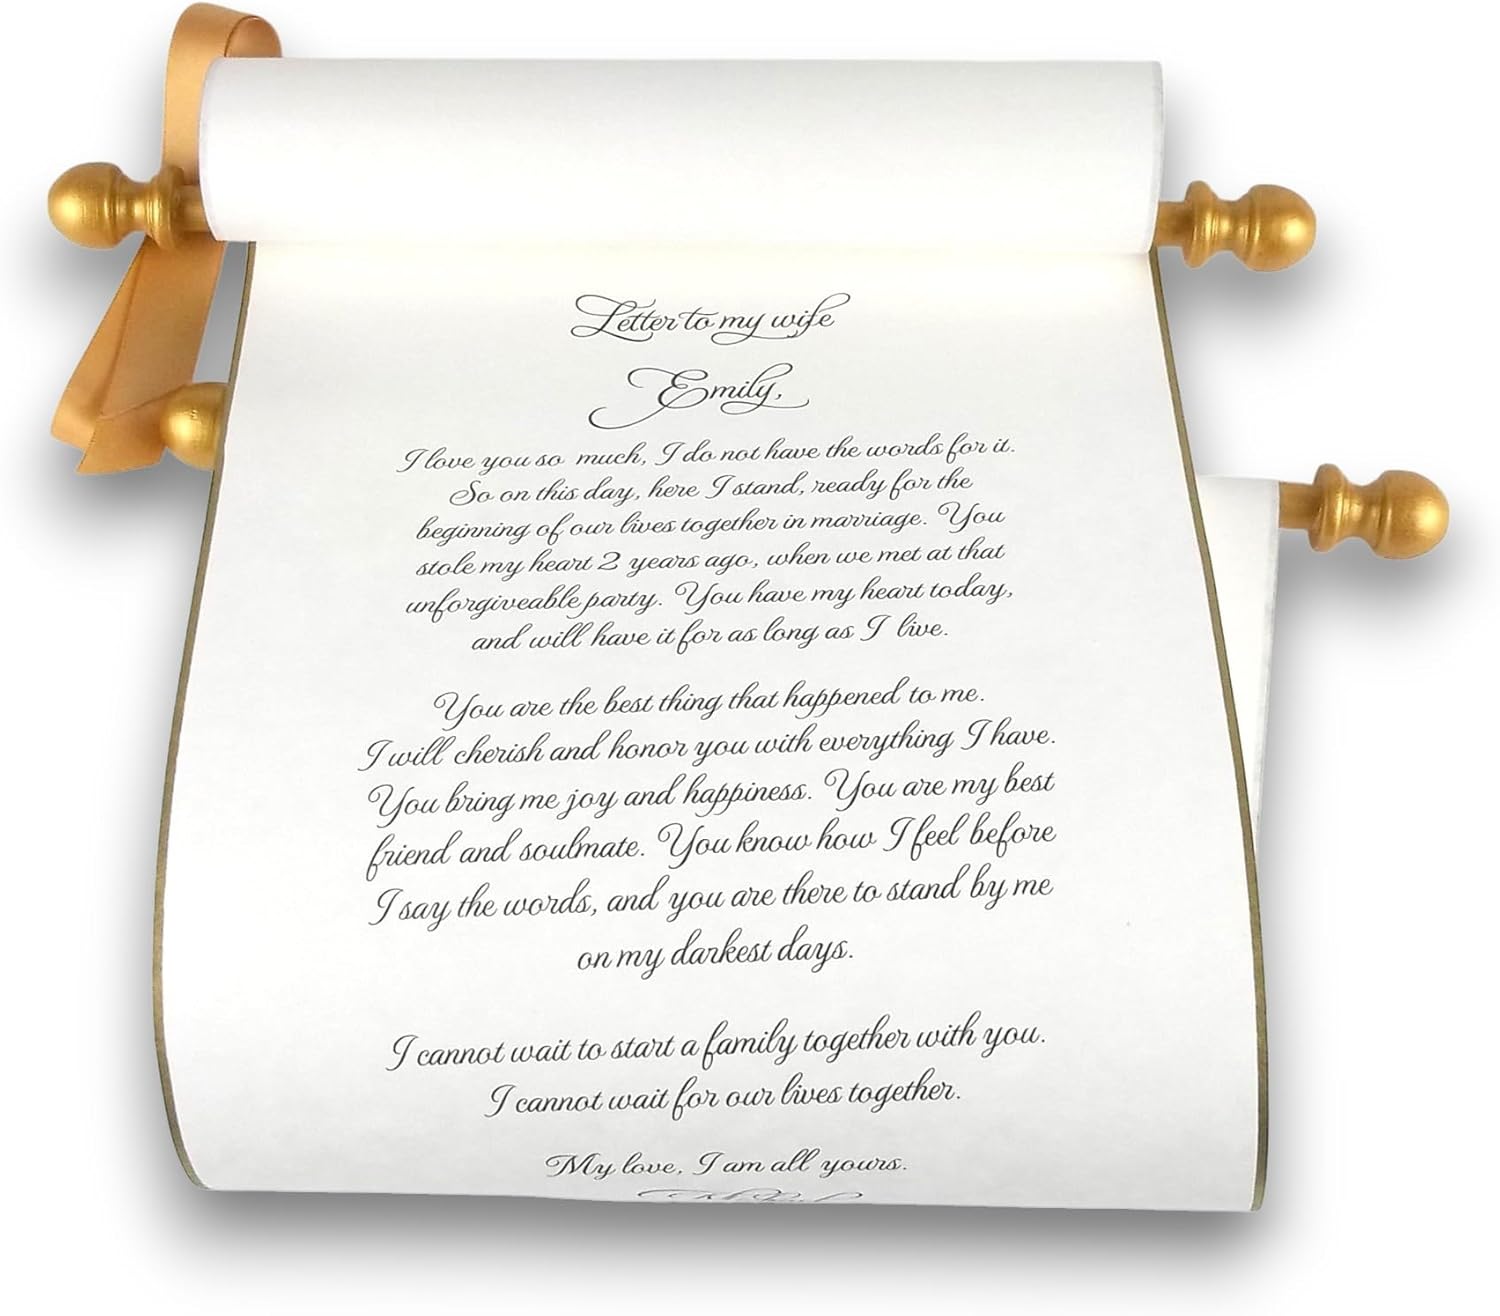 Letter to my wife
Emily,
I love you so much, I do not have the words for it.
So on this day, here I stand, ready for the
beginning of our lives together in marriage. You
stole my heart 2 years ago, when we met at that
unforgiveable party. You have my heart today,
and will have it for as long as I live.
You are the best thing that happened to me.
I will cherish and honor you with everything I have.
You bring me joy and happiness. You are my best
friend and soulmate. You know how I feel before
I say the words, and you are there to stand by me
on my darkest days.
I cannot wait to start a family together with you.
I cannot wait for our lives together.
My love, I am all yours.